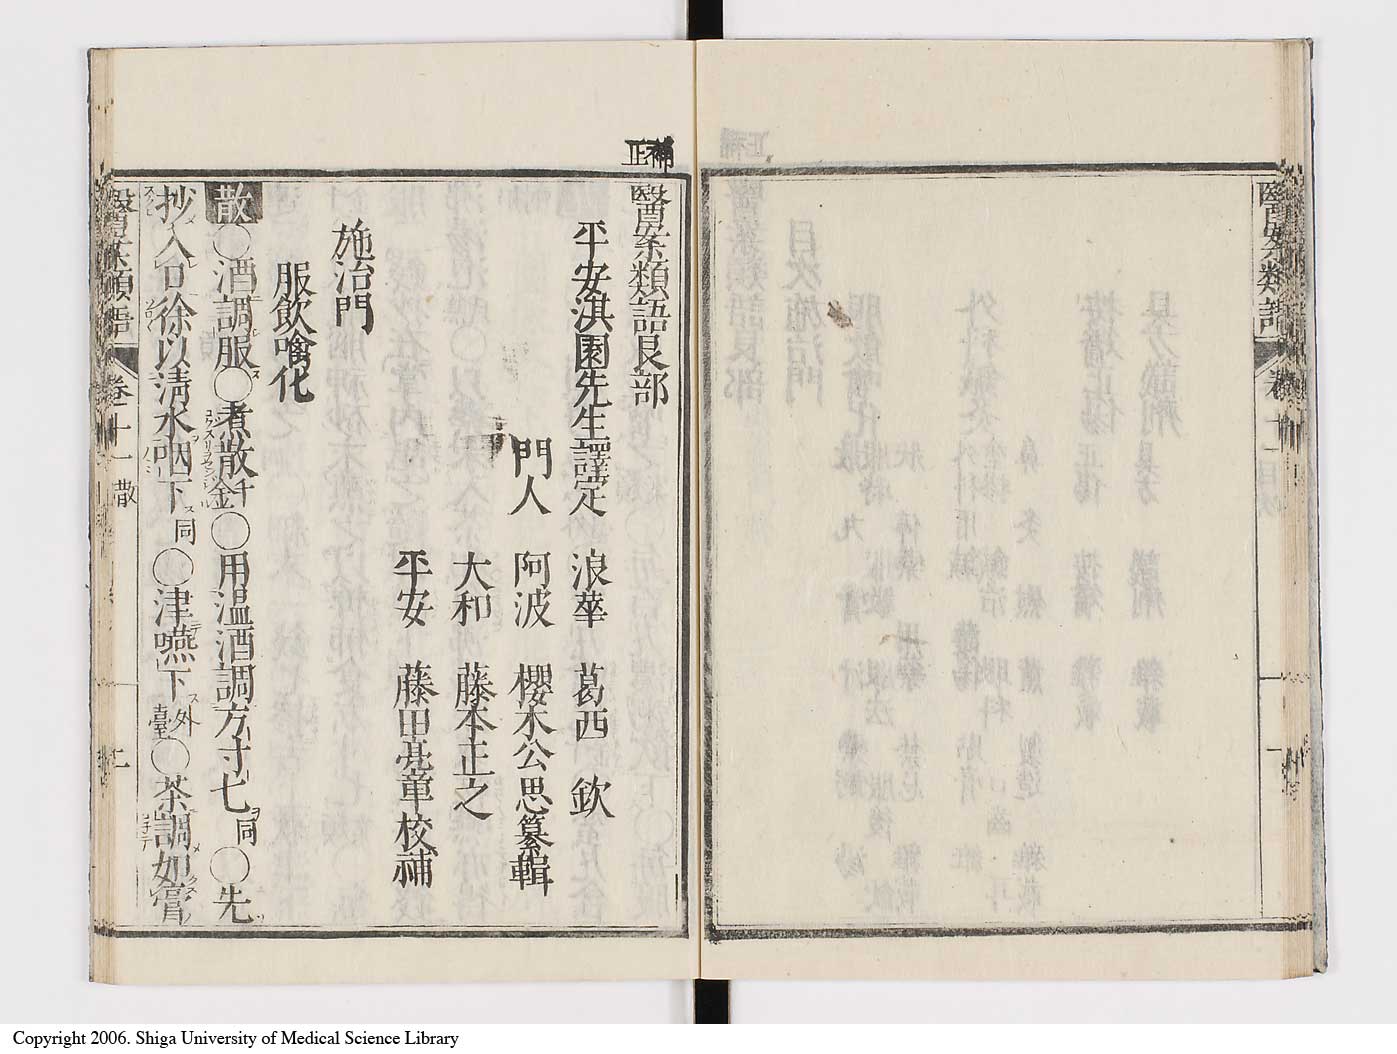 醫案類語
卷十一目次
補正
醫案類語艮部
平安淇園先生譯定 浪華 葛西 欽
門人 阿波 櫻木公思纂輯
大和 藤本正之
平安 藤田亮章校補
施治門
服飲噙化
散〇酒調服〇煮散千金〇用温酒調方寸七同〇先
抄入口徐以淸水咽下同〇津嚥下外臺〇茶調如膏
醫案類語
卷十一 散
Copyright 2006. Shiga University of Medical Science Library